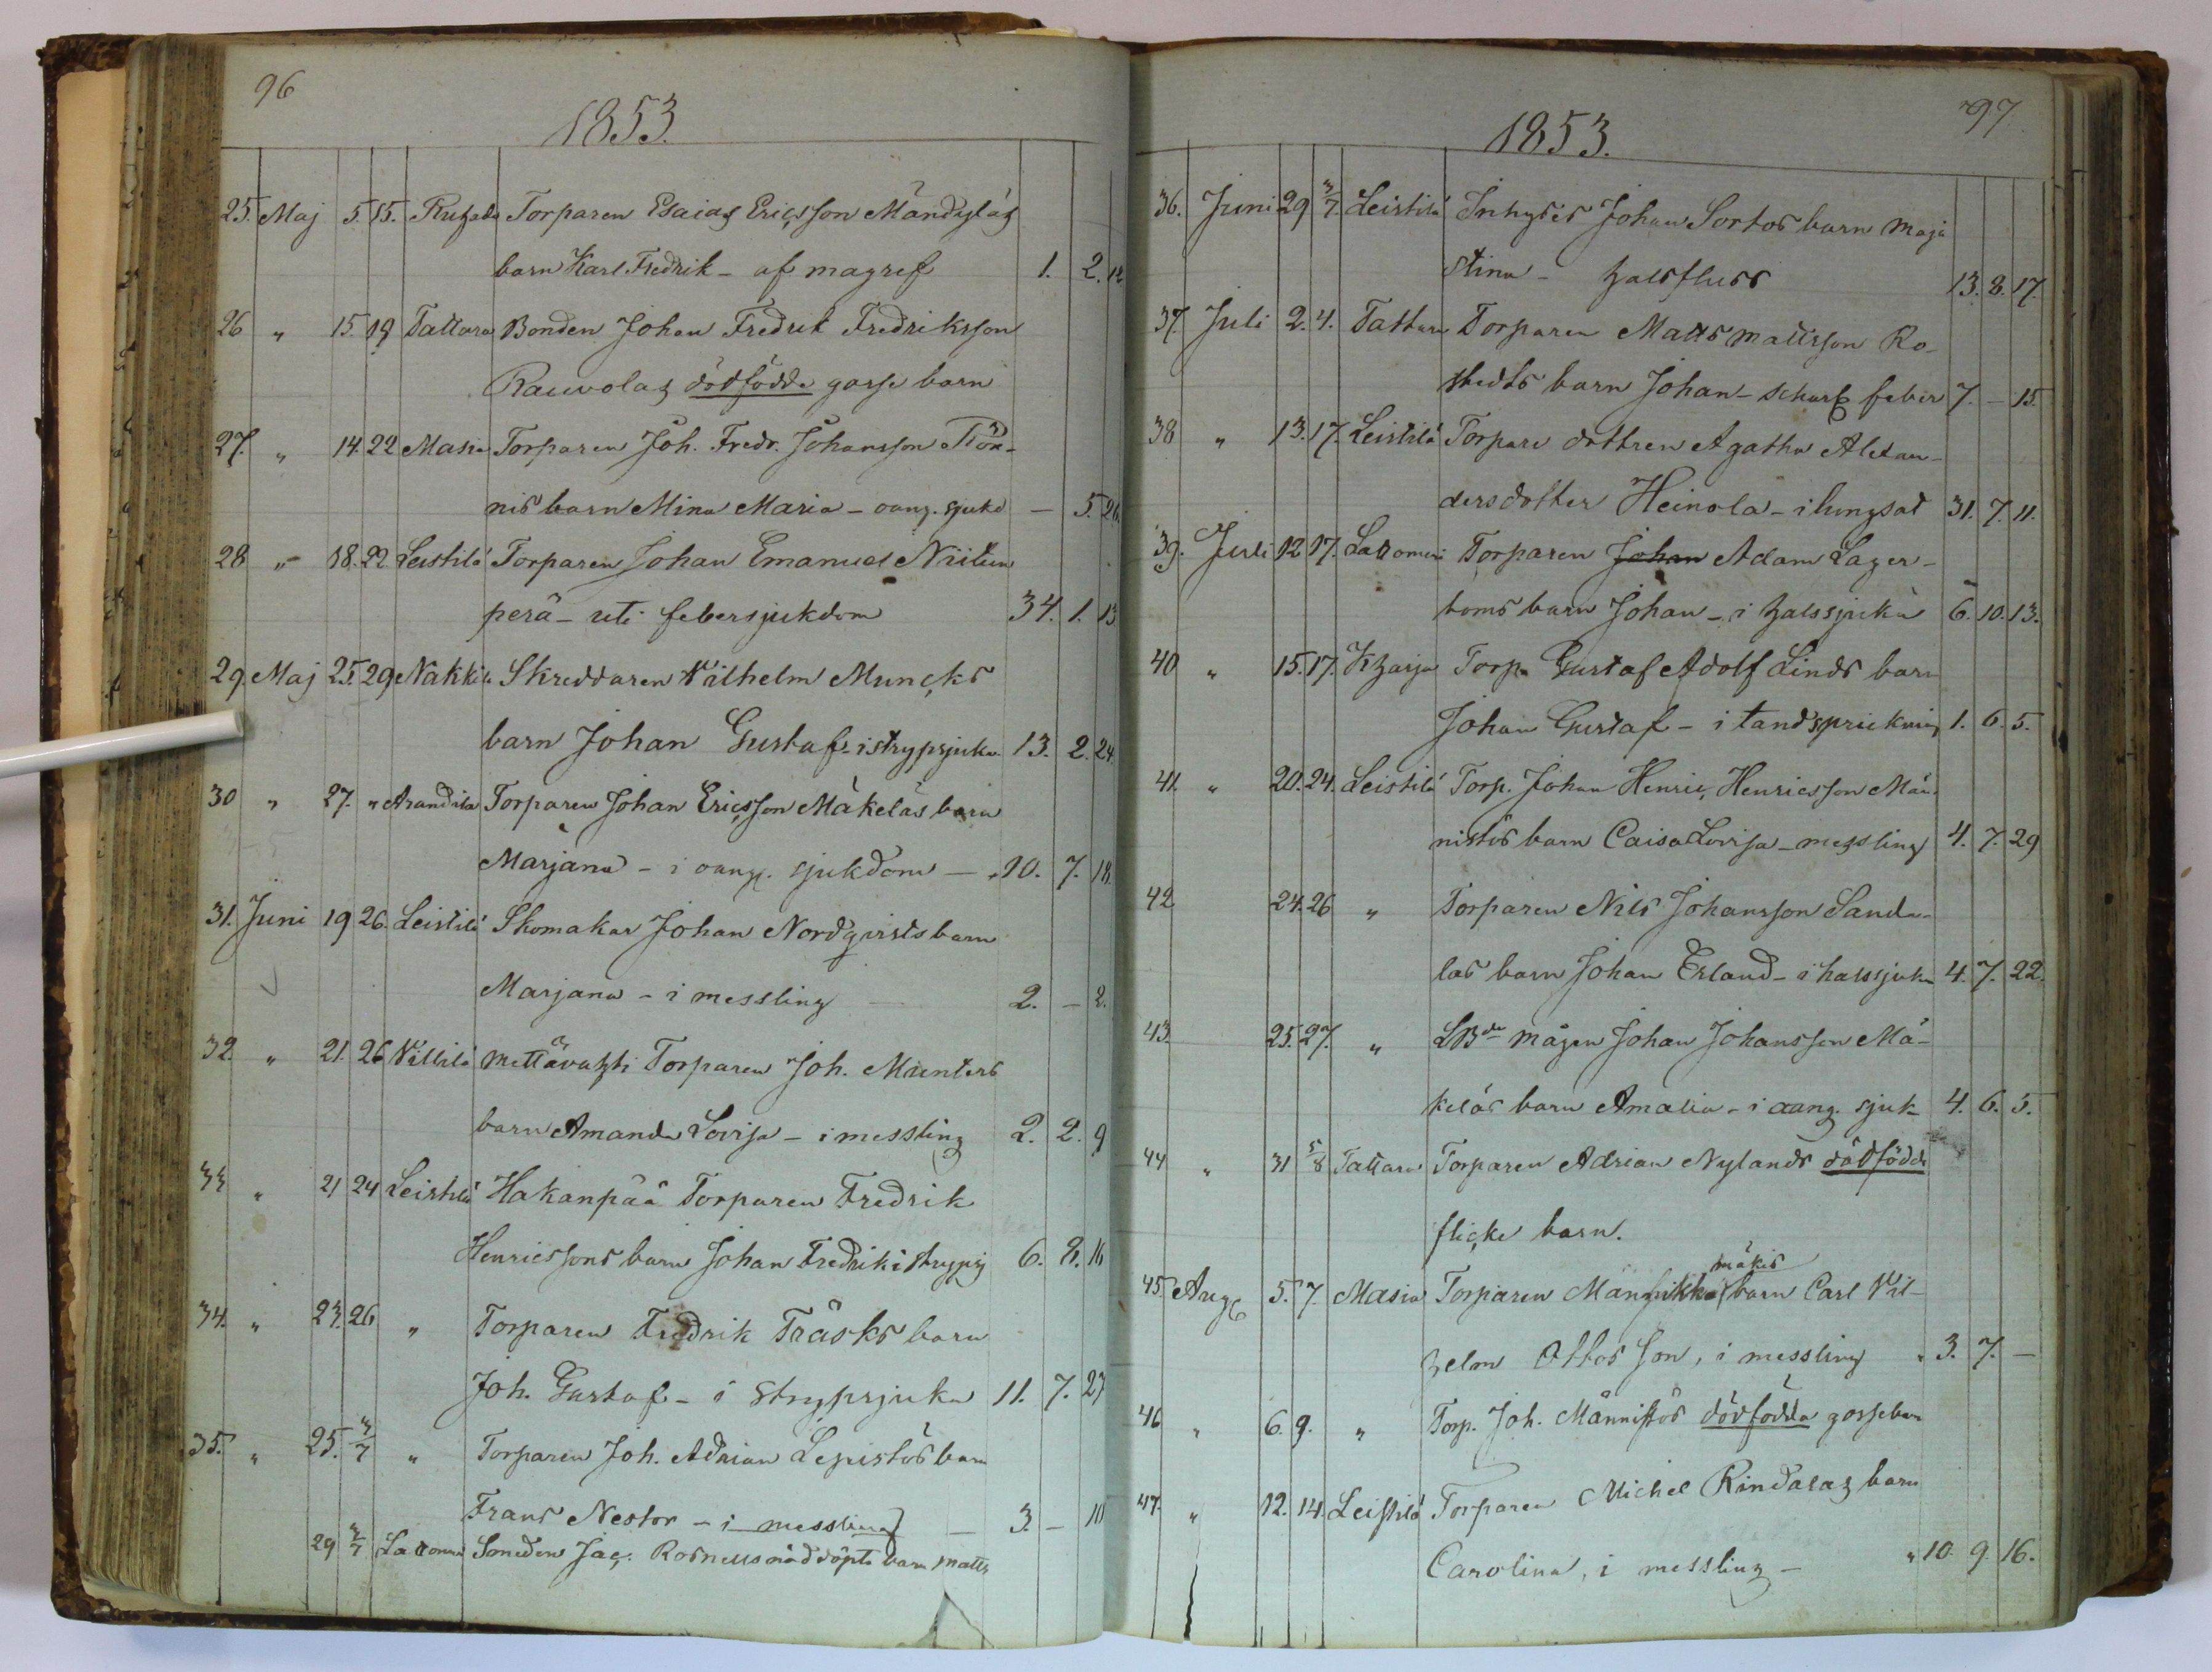 96
1853.
25. Maj 5. 15. Torparen Esaias Ericsson Mändyläs
barn Karl Fredrik - af magref 1. 2. 12
26 „ 15. 19 Tattara Bonden Johan Fredrik Fredriksson
Rauvolas dödfödde gosse barn
27. „ 14. 22 Masia Torparen Joh. Fredr. Johansson Tör-
nis barn Mina Maria - oang. sjukd — 5. 26.
28 „ 18. 22 Leistilä Torparen Johan Emanuel Niitun
perä - uti febersjukdom 34. 1. 13
29. Maj 25. 29 Nakkila Skreddaren Wilhelm Muncks
barn Johan Gustaf - i strypsjuka 13. 2. 24.
30 „ 27. „ Arandila Torparen Johan Ericsson Mäkeläs barn
Marjana - i oang. sjukdom — 10. 7. 18.
31. Juni 19 26. Leistilä Skomakar Johan Nordqvists barn
Marjana - i messling — 2. — 2.
32 „ 21. 26 Villilä Torparen Joh. Munters
barn Amanda Lovisa - i messling 2. 2. 9
33 „ 21 24 Leistilä Hakanpää Torparen Fredrik
Henricssons barn Johan Fredrik i strypsj 6. 8. 16
34. „ 23. 26 „ Torparen Fredrik Träsks barn
Joh. Gustaf - i strypsjuka 11. 7. 27
35. „ 25. 3/7 „ Torparen Joh. Adrian Lepistös barn
Frans Nestor - i messling — 3. — 10
29 3/7 Lattomeri Smeden Jac. Rosnells nöddöpta barn Matts
97
1853.
36. Juni 29 3/7. Leistilä Inhyses Johan Sortos barn Maja
Stina - halsfluss 13. 8. 17.
37. Juli 2. 4. Tattara Torparen Matts Mattsson Ro-
stedts barn Johan - scharl feber 7. — 15.
38 „ 13. 17. Leistilä Torpare dottren Agatha Alexan-
dersdotter Heinola - i lungsot 31. 7. 11.
39. Juli 12 17. Lattomeri Torparen Johan Adam Lager-
boms barn Johan - i halssjuka 6. 10. 13.
40 „ 15. 17. Kharja Torp. Gustaf Adolf Linds barn
Johan Gustaf - i tandsprickning 1. 6. 5.
41. „ 20. 24. Leistilä Torp. Johan Henric Henricsson Män-
nistös barn Caisa Lovisa - messling 4. 7. 29
42 24. 26 „ Torparen Nils Johansson Santa-
las barn Johan Erland - i halssjuka 4. 7. 22.
43. 25. 27. „ LBde mågen Johan Johansson Mä-
keläs barn Amalia - i oang. sjuk 4. 6. 5.
44 „ 31 5/8 Tattara Torparen Adrian Nylands dödfödde
flicke barn.
mäkis
45. Aug 5. 7. Masia Torparen barn Carl Wil-
helm Ottos son, i messling „ 3. 7. —
46 „ 6. 9. „ Torp. Joh. Männistös dödfödda gossebarn
47. „ 12. 14. Leistilä Torparen Michel Rindalas barn
Carolina, i messling - „ 10. 9. 16.